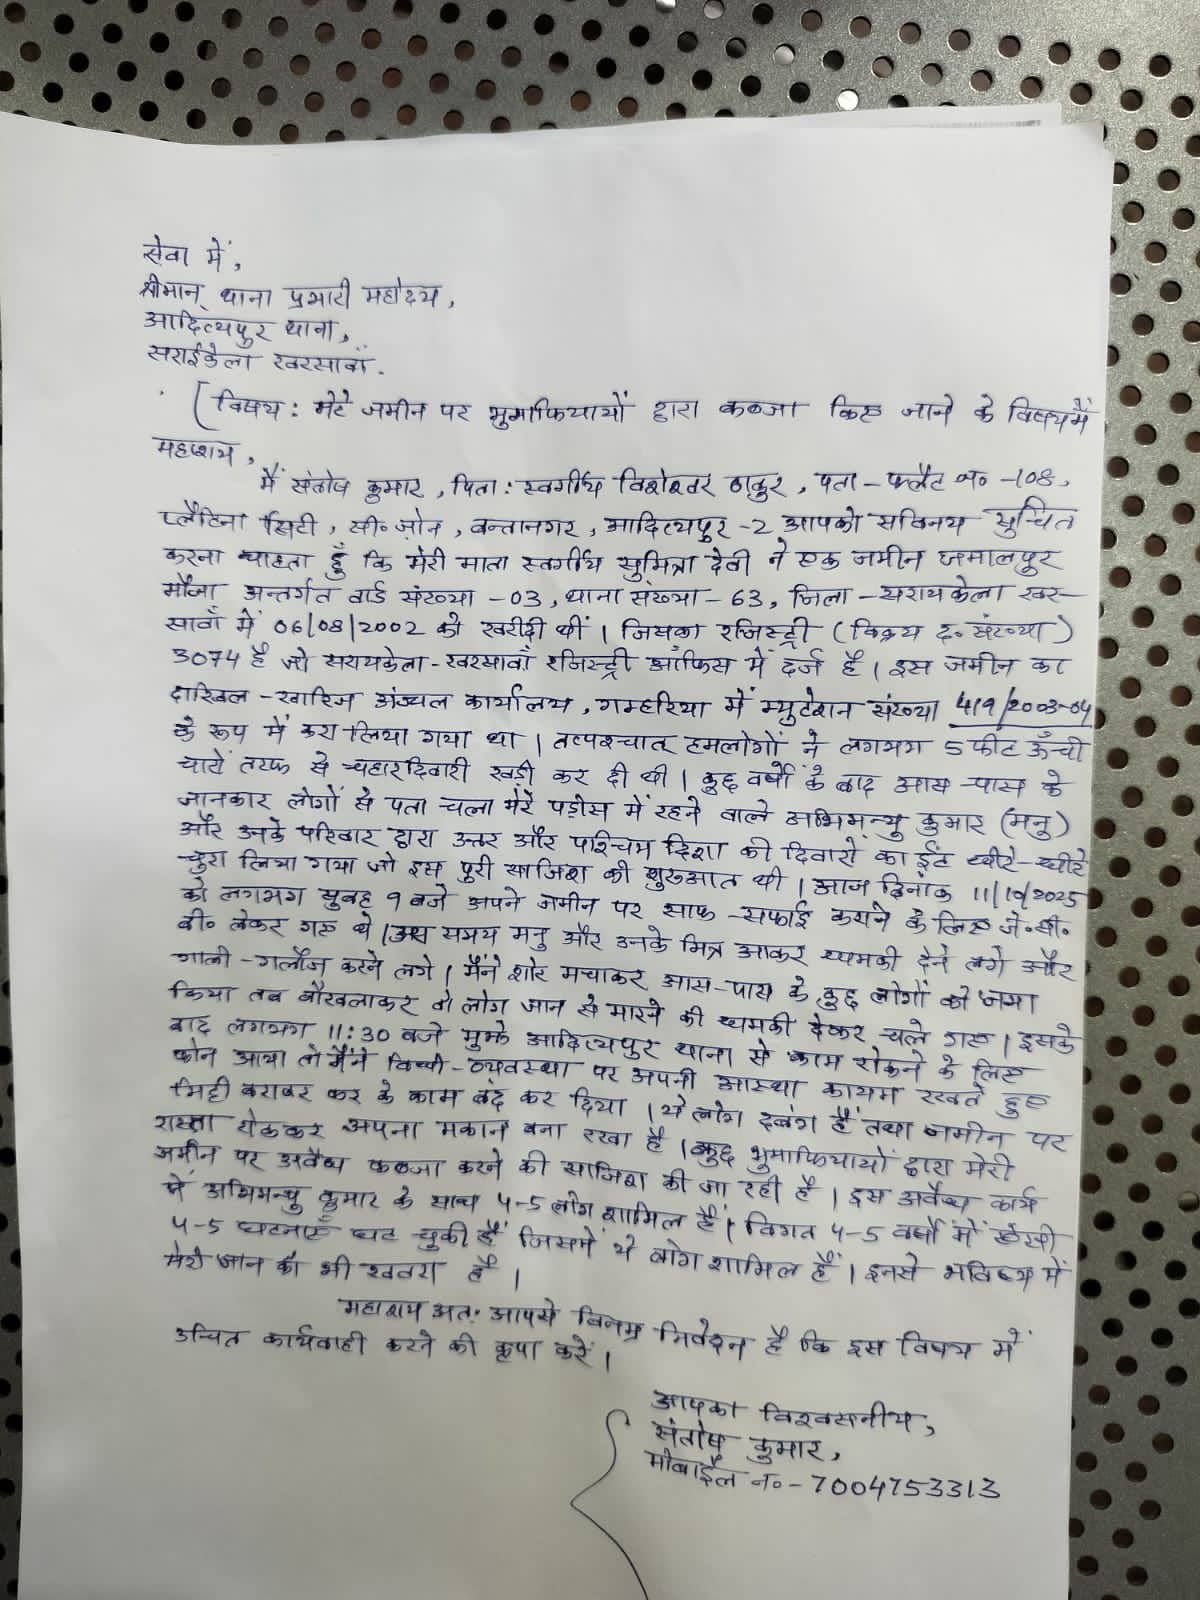 सेवा में,
श्रीमान् थाना प्रभारी महोदय,
आदित्यपुर थाना,
सराईकेला खरसावाँ.
[विषय: मेरे जमीन पर भुमाफियायों द्वारा कब्जा किए जाने के विषय में
महाशय,
मैं संतोष कुमार, पिता: स्वर्गीय विशेश्वर ठाकुर, पता - फ्लैट न० -108,
प्लैटिना सिटी, सी० जोन, बन्तानगर, आदित्यपुर -2 आपको सविनय सुचित
करना चाहता हूँ कि मेरी माता स्वर्गीय सुमित्रा देवी ने एक जमीन जमालपुर
मौजा अन्तर्गत वार्ड संख्या -03, थाना संख्या - 63, जिला - सरायकेला खर-
सावाँ में 06/08/2002 को खरीदी थीं। जिसका रजिस्ट्री (विक्रय द० संख्या)
3074 है जो सरायकेला-खरसावाँ रजिस्ट्री ऑफिस में दर्ज है। इस जमीन का
दाखिल - खारिज अंचल कार्यालय, गम्हरिया में म्युटेशन संख्या 419/2003-04
के रूप में करा लिया गया था। तत्पश्चात् हमलोगों ने लगभग 5 फीट ऊँची
चारों तरफ से चहारदिवारी खड़ी कर दी थी। कुछ वर्षों के बाद आस-पास के
जानकार लोगों से पता चला मेरे पड़ोस में रहने वाले अभिमन्यु कुमार (मनु)
और उनके परिवार द्वारा उत्तर और पश्चिम दिशा की दिवारों का ईंट धीरे-धीरे
चुरा लिया गया जो इस पुरी साजिश की शुरुआत थी। आज दिनांक 11/10/2025
को लगभग सुबह 9 बजे अपने जमीन पर साफ-सफाई कराने के लिए जे० सी०
बी० लेकर गए थे। उस समय मनु और उनके मित्र आकर धमकी देने लगे और
गाली-गलौज करने लगे। मैंने शोर मचाकर आस-पास के कुछ लोगों को जमा
किया तब बौखलाकर वो लोग जान से मारने की धमकी देकर चले गए। इसके
बाद लगभग 11:30 बजे मुझे आदित्यपुर थाना से काम रोकने के लिए
फोन आया तो मैंने विधी-व्यवस्था पर अपनी आस्था कायम रखते हुए
मिट्टी बराबर कर के काम बंद कर दिया। ये लोग दबंग हैं तथा जमीन पर
रास्ता रोककर अपना मकान बना रखा है। कुछ भुमाफियायों द्वारा मेरी
जमीन पर अवैध कब्जा करने की साजिश की जा रही है। इस अवैध कार्य
में अभिमन्यु कुमार के साथ 4-5 लोग शामिल हैं। विगत 4-5 वर्षों में ऐसी
4-5 घटनाएँ घट चुकी हैं जिसमें ये लोग शामिल हैं। इनसे भविष्य में
मेरी जान का भी खतरा है।
महाशय अतः आपसे विनम्र निवेदन है कि इस विषय में
उचित कार्यवाही करने की कृपा करें।
आपका विश्वसनीय,
संतोष कुमार,
मोबाईल न० - 7004753313